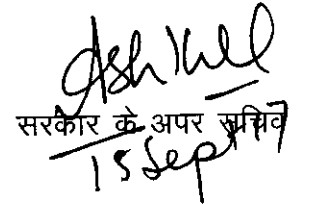 सरकार के अपर सचिव
15 Sep 17